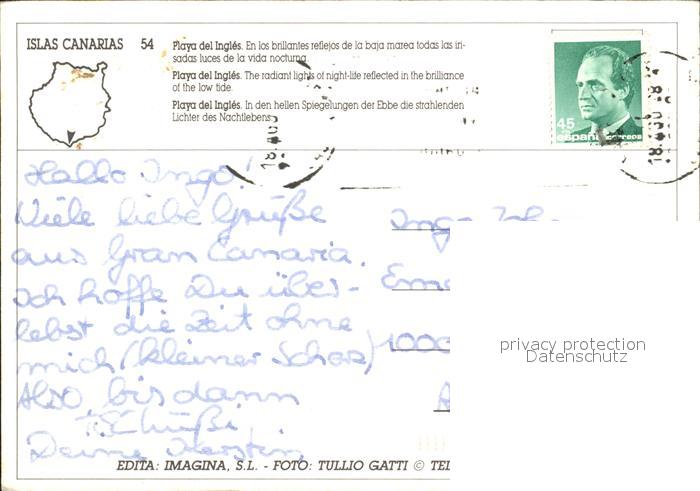 ISLAS CANARIAS 54
Playa del Inglés. En los brillantes reflejos de la baja marea todas las iri-
sadas luces de la vida nocturna.
Playa del Inglés. The radiant lights of night-life reflected in the brilliance
of the low tide.
Playa del Inglés. In den hellen Spiegelungen der Ebbe die strahlenden
Lichter des Nachtlebens.
45
españa CORREOS
Hallo Ingo!
Viele liebe Grüße
aus Gran Canaria.
Ich hoffe Du über-
lebst die Zeit ohne
mich (kleiner Scherz)
Also bis dann
Tschüßi
Deine Kersten
Ingo
1000
privacy protection
Datenschutz
EDITA: IMAGINA, S.L. - FOTO: TULLIO GATTI © TEL